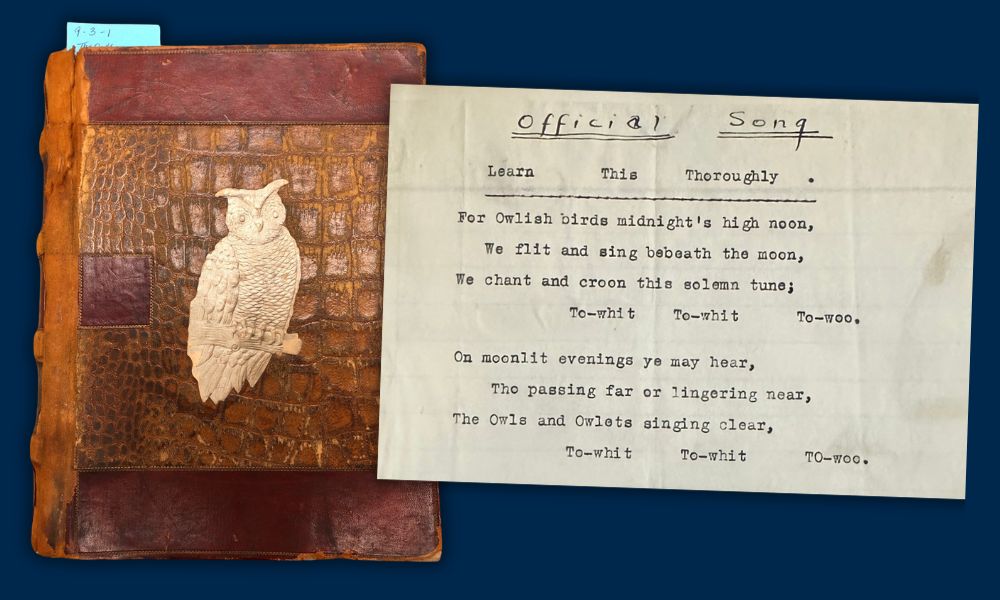 9-3-1
Official Song
Learn This Thoroughly .
For Owlish birds midnight's high noon,
We flit and sing bebeath the moon,
We chant and croon this solemn tune;
To-whit To-whit To-woo.
On moonlit evenings ye may hear,
Tho passing far or lingering near,
The Owls and Owlets singing clear,
To-whit To-whit TO-woo.